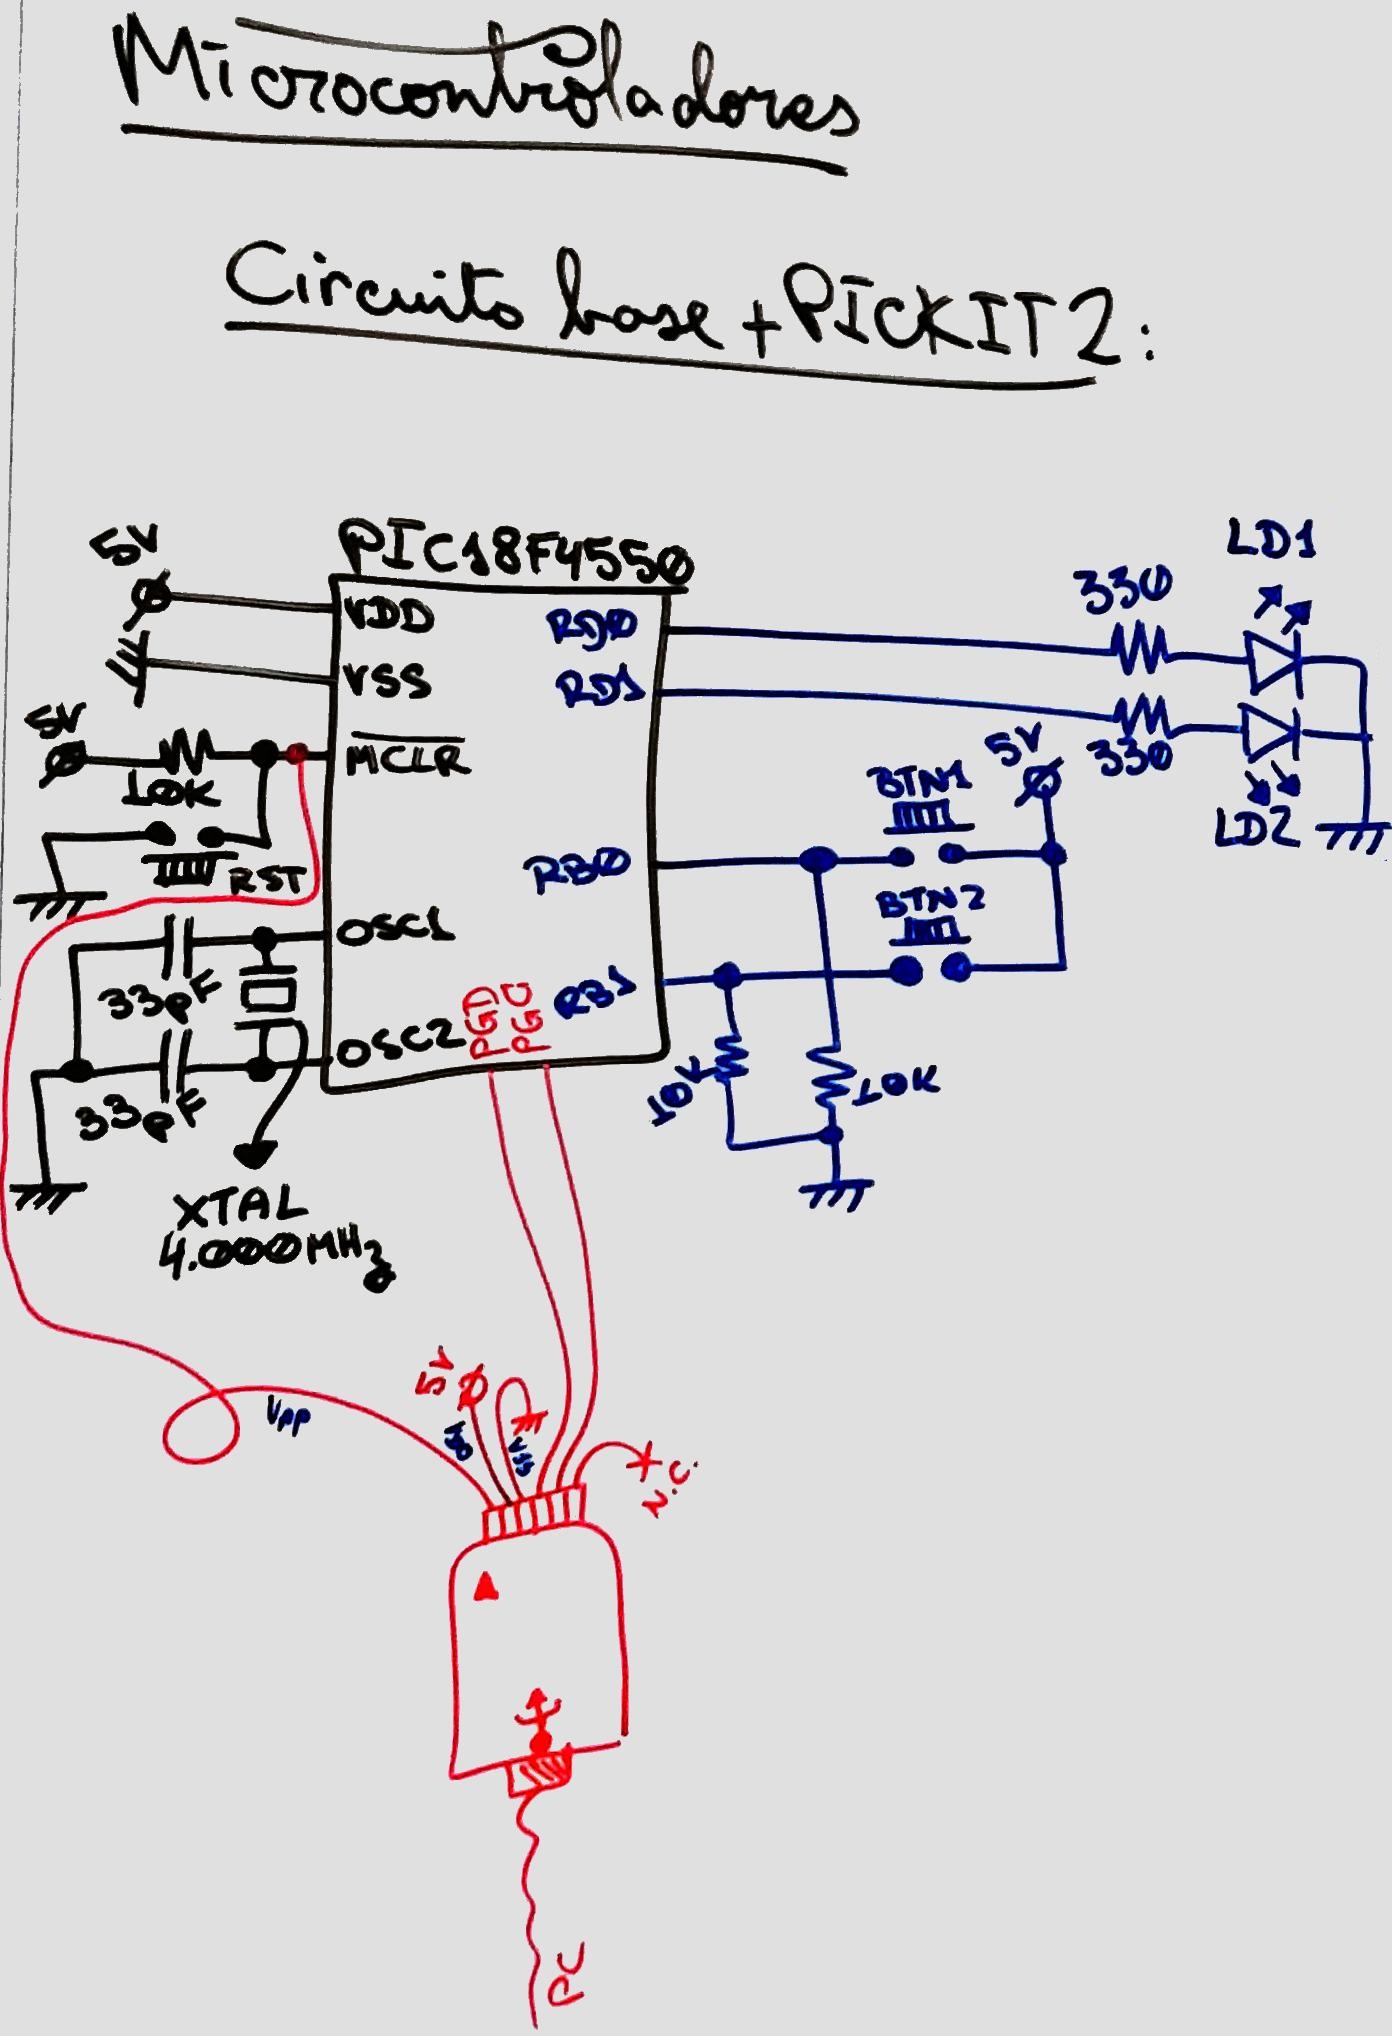 Microcontroladores
Circuito base + PICKIT2:
PIC18F4550
5V
VDD
VSS
5V
10K
MCLR
RST
OSC1
33pF
OSC2
33pF
XTAL
4.000MHz
PGD
PGC
RD0
RD1
RB0
RB1
330
LD1
330
LD2
5V
BTN1
BTN2
10K
10K
Vpp
5V
N.C.
PC